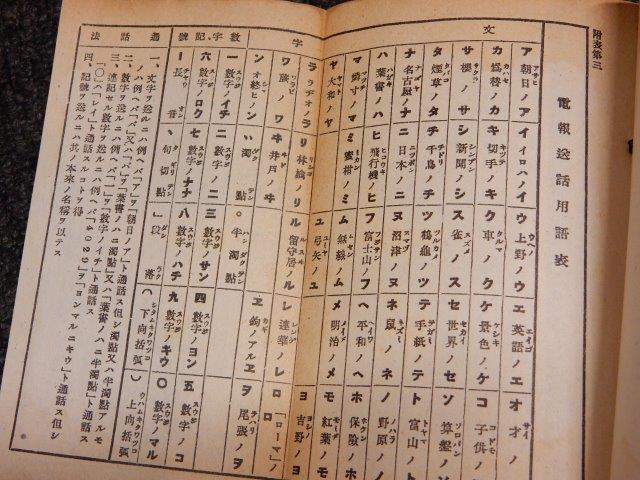 附表第三
電報送話用語表
文字
ア 朝日ノア
イ イロハノイ
ウ 上野ノウ
エ 英語ノエ
オ
カ 爲替ノカ
キ 切手ノキ
ク 車ノク
ケ 景色ノケ
コ 子供ノ
サ 櫻ノサ
シ 新聞ノシ
ス 雀ノス
セ 世界ノセ
ソ 算盤ノ
タ 煙草ノタ
チ 千鳥ノチ
ツ 鶴龜ノツ
テ 手紙ノテ
ト 富山ノト
ナ 名古屋ノナ
ニ 日本ノニ
ヌ 沼津ノヌ
ネ 鼠ノネ
ノ 野原ノノ
ハ 葉書ノハ
ヒ 飛行機ノヒ
フ 富士山ノフ
ヘ 平和ノヘ
ホ 保険ノホ
マ 燐寸ノマ
ミ 蜜柑ノミ
ム 無線ノム
メ 明治ノメ
モ 紅葉ノモ
ヤ 大和ノヤ
ユ 弓矢ノユ
ヨ 吉野ノヨ
ラ ラヂオノラ
リ 林檎ノリ
ル 留守居ノル
レ 連華ノレ
ロ 「ローマ」ノロ
ワ 蕨ノワ
ヰ 井戸ノヰ
ヱ 鉤ノアルヱ
ヲ 尾張ノヲ
ン オ終ヒノン
゛ 濁點
゜ 半濁點
數字
一 數字ノイチ
二 數字ノニ
三 數字ノサン
四 數字ノヨン
五 數字ノゴ
六 數字ノロク
七 數字ノナナ
八 數字ノハチ
九 數字ノキウ
〇 數字ノマル
記號
ー 長音
、 句切點
」 段落
（ 下向括弧
） 上向括弧
通話法
一、文字ヲ送ルニハ例ヘバ「ア」ヲ「朝日ノア」ト通話ス但シ濁點又ハ半濁點アルモ
ノハ例ヘバ「バ」又ハ「パ」ヲ「葉書ノハニ濁點」又ハ「葉書ノハニ半濁點」ト通話ス
二、數字ヲ送ルニハ例ヘバ「一」ヲ「數字ノイチ」ト通話ス
三、連記セル數字ヲ送ルニハ例ヘバ「4029」ヲ「ヨンマルニキウ」ト通話ス但シ
「〇」ハ「レイ」ト通話スルコトヲ得
四、記號ヲ送ルニハ其ノ本來ノ名稱ヲ以テス